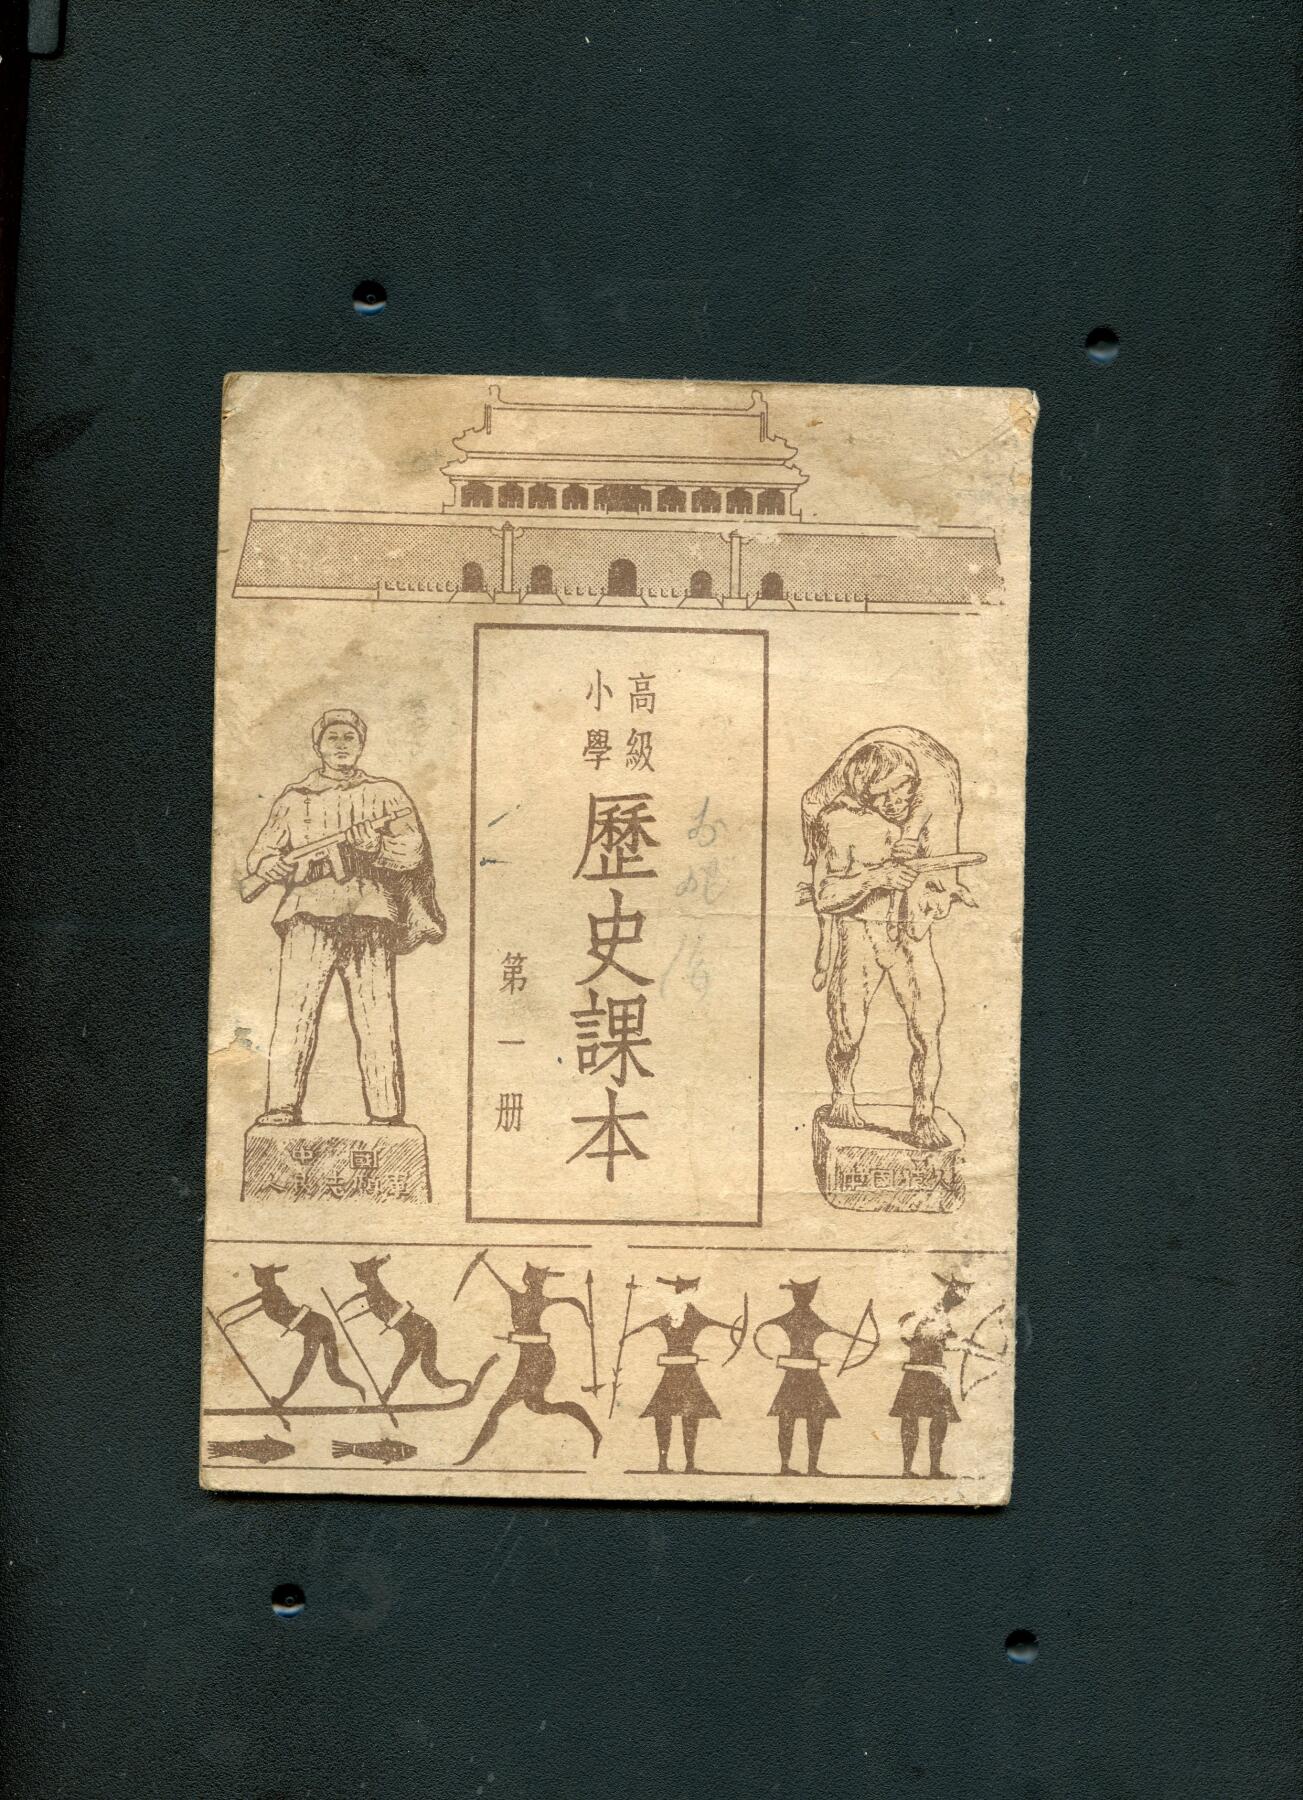 高級
小學
歷史課本
第一册
中國
人民志願軍
中國猿人